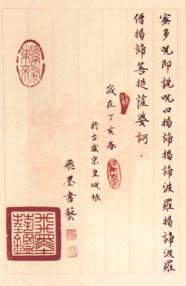 蜜多呪即説呪曰揭諦揭諦波羅揭諦波羅
僧揭諦菩提薩婆訶
歲在丁亥春
於古盛京皇城根
飛墨書藝